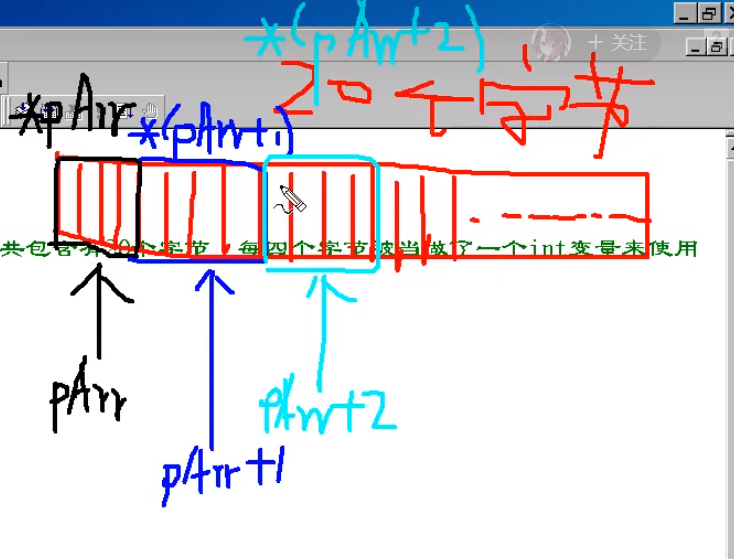 *(pArr+2)
+ 关注
20个字节
*pArr
*(pArr+1)
共包含有20个字节，每四个字节被当做了一个int变量来使用
pArr
pArr+1
pArr+2